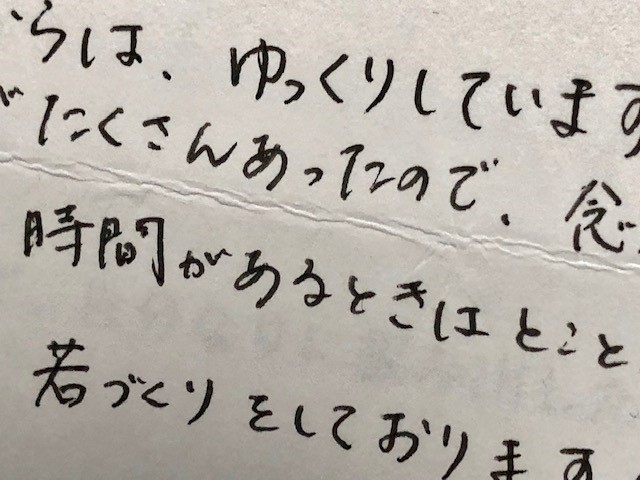 らは、ゆっくりしています
がたくさんあったので、念
時間があるときはとこと
若づくりをしております